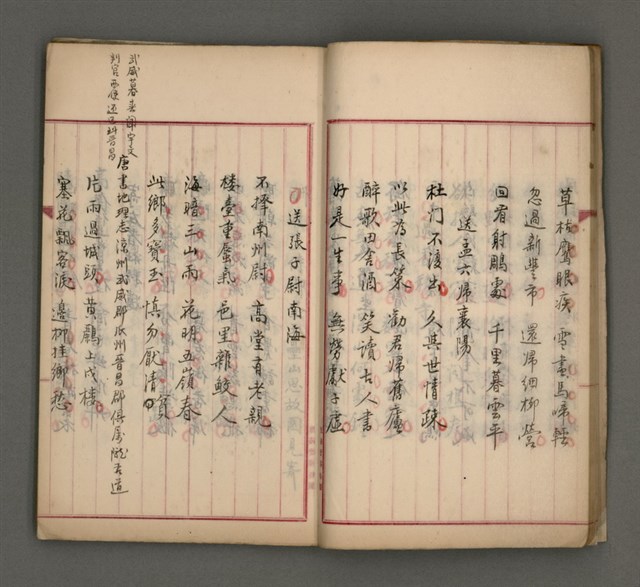 草枯鷹眼疾 雪盡馬啼輕
忽過新豐市 還帰細柳營
回看射鵰處 千里暮雲平
送孟六帰襄陽
杜门不復出 久與世情疎
以此為長策 勸君帰舊廬
醉歌田舍酒 笑讀古人書
好是一生事 無勞獻子虛
送張子尉南海
不擇南州尉 高堂有老親
樓臺重蜃氣 邑里雜鮫人
海暗三山雨 花明五嶺春
此鄉多寶玉 慎勿厭清貧
武威暮春聞宇文
判官西使還已到晉昌
唐書地理志涼州武威郡瓜州晉昌郡俱屬隴右道
片雨過城頭 黄鸝上戍樓
塞花飄客淚 邉柳挂鄉愁